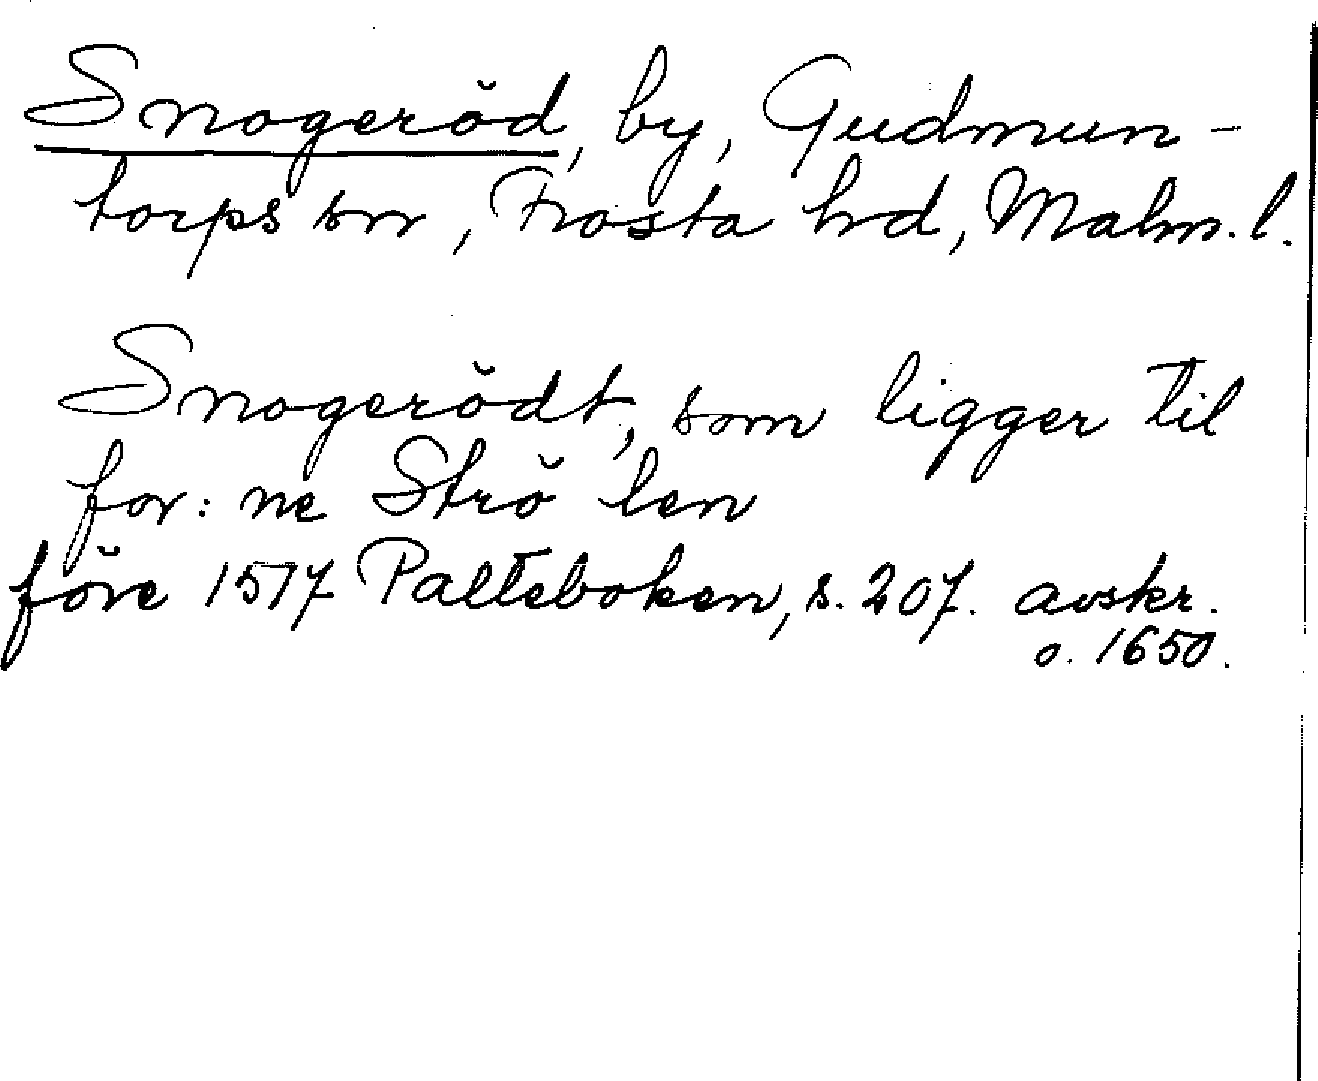 Snogeröd, by, Gudmun-
torps sn, Frosta hd, Malm. l.
Snogerödt, som ligger til
for: ne Strö len
före 1517 Palteboken, s. 207. avskr.
o. 1650.